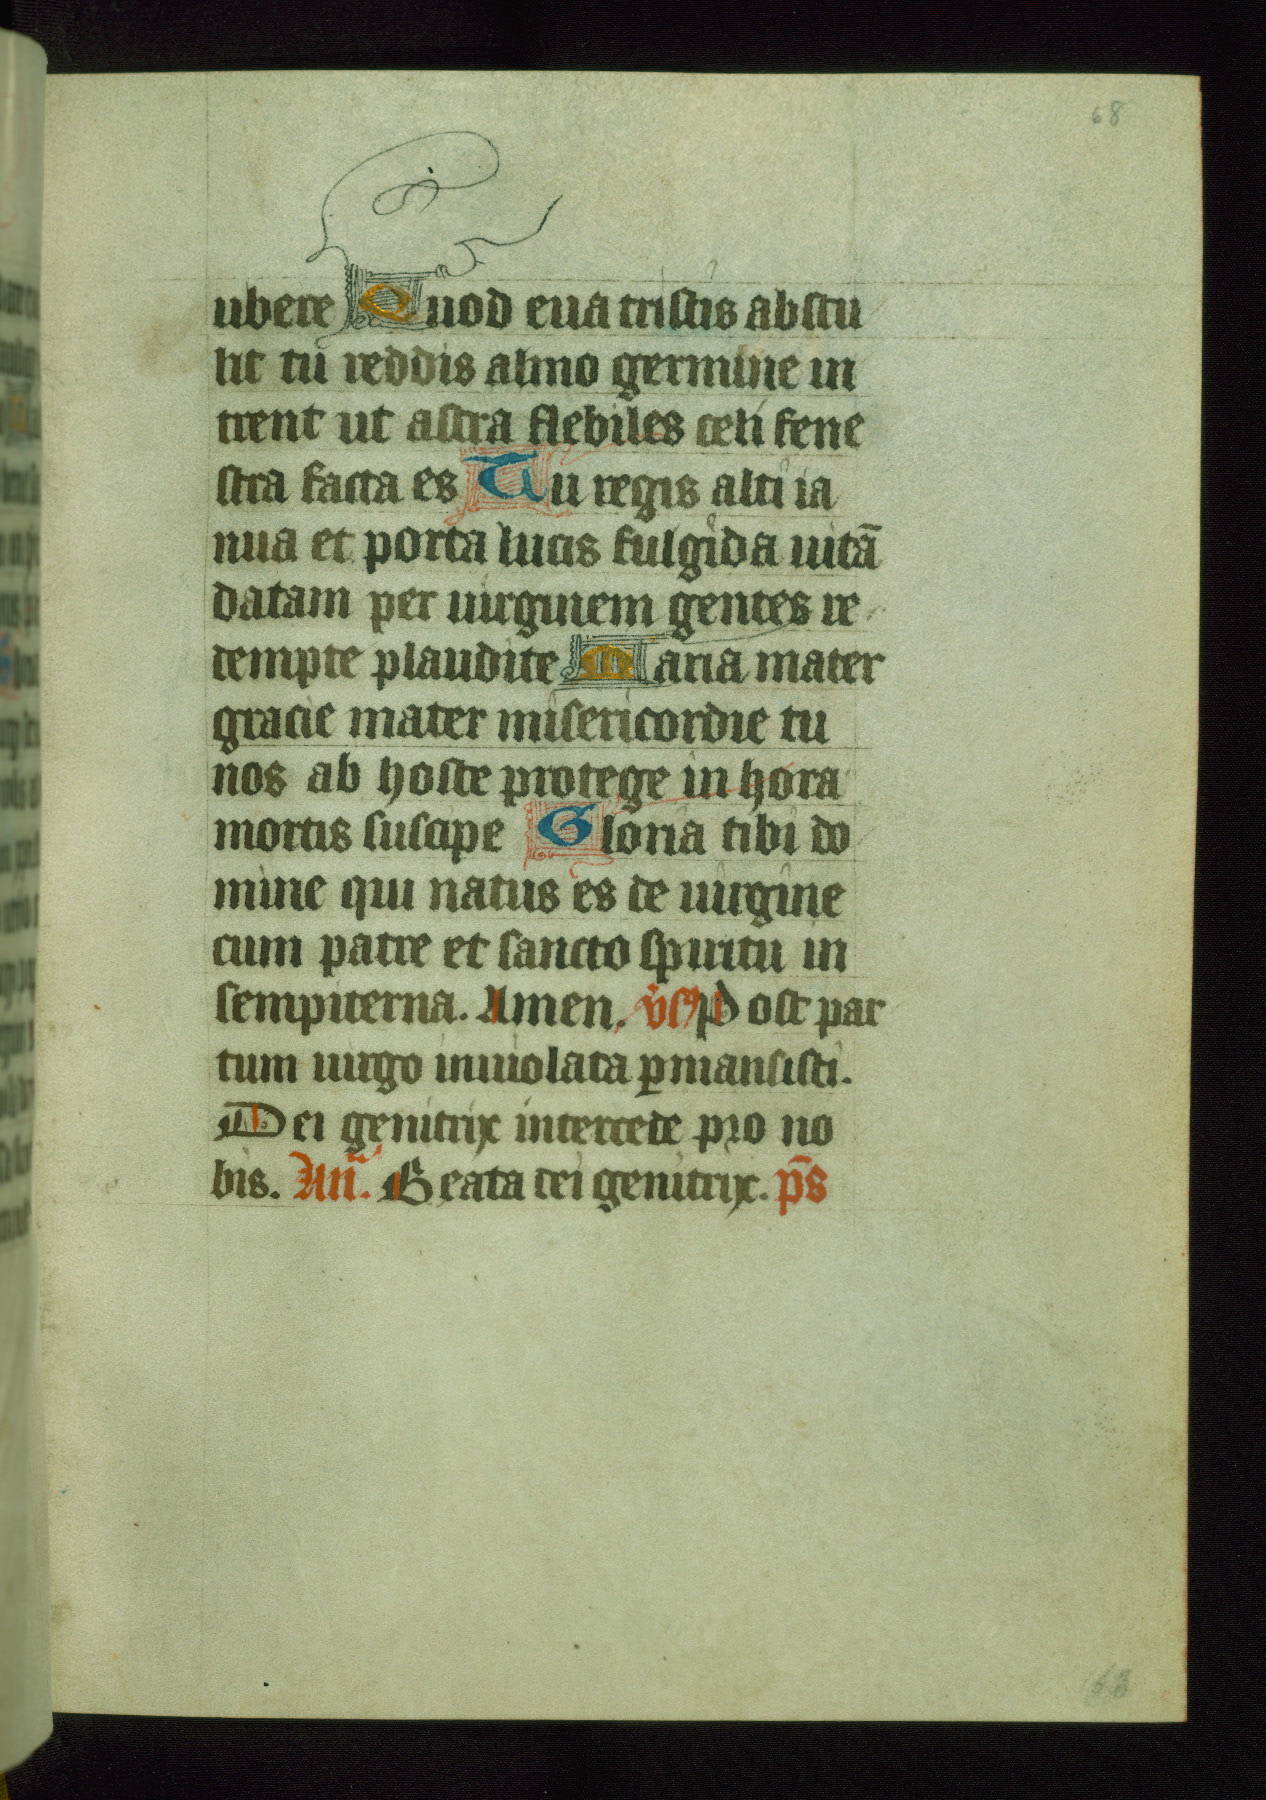 68
ubere Quod eua tristis abstu
lit tu reddis almo germine in
trent ut astra flebiles celi fene
stra facta es Tu regis alti ia
nua et porta lucis fulgida uitā
datam per uirginem gentes re
dempte plaudite Maria mater
gracie mater misericordie tu
nos ab hoste protege in hora
mortis suscipe Gloria tibi do
mine qui natus es de uirgine
cum patre et sancto spiritu in
sempiterna. Amen. Post par
tum uirgo inuiolata ꝑmansisti.
Dei genitrix intercede pro no
bis. Añ. Beata dei genitrix. p̄s